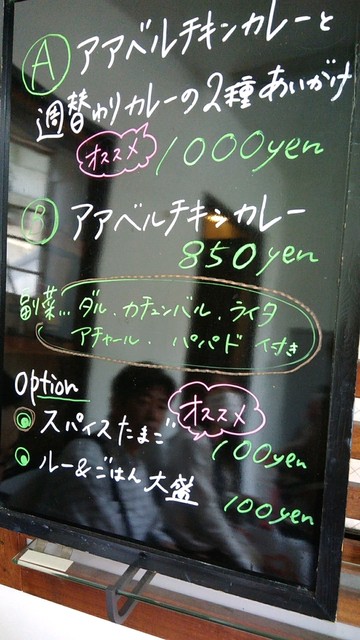 A アアベルチキンカレーと
週替わりカレーの2種あいがけ
オススメ 1000yen
B アアベルチキンカレー
850yen
副菜… ダル、カチュンバル、ライタ
アチャール、パパド 付き
option
オススメ
スパイスたまご 100yen
ルー&ごはん大盛 100yen